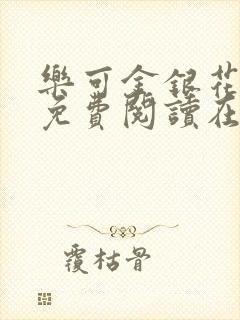 樂可金銀花
免費閱讀在
覆枯骨